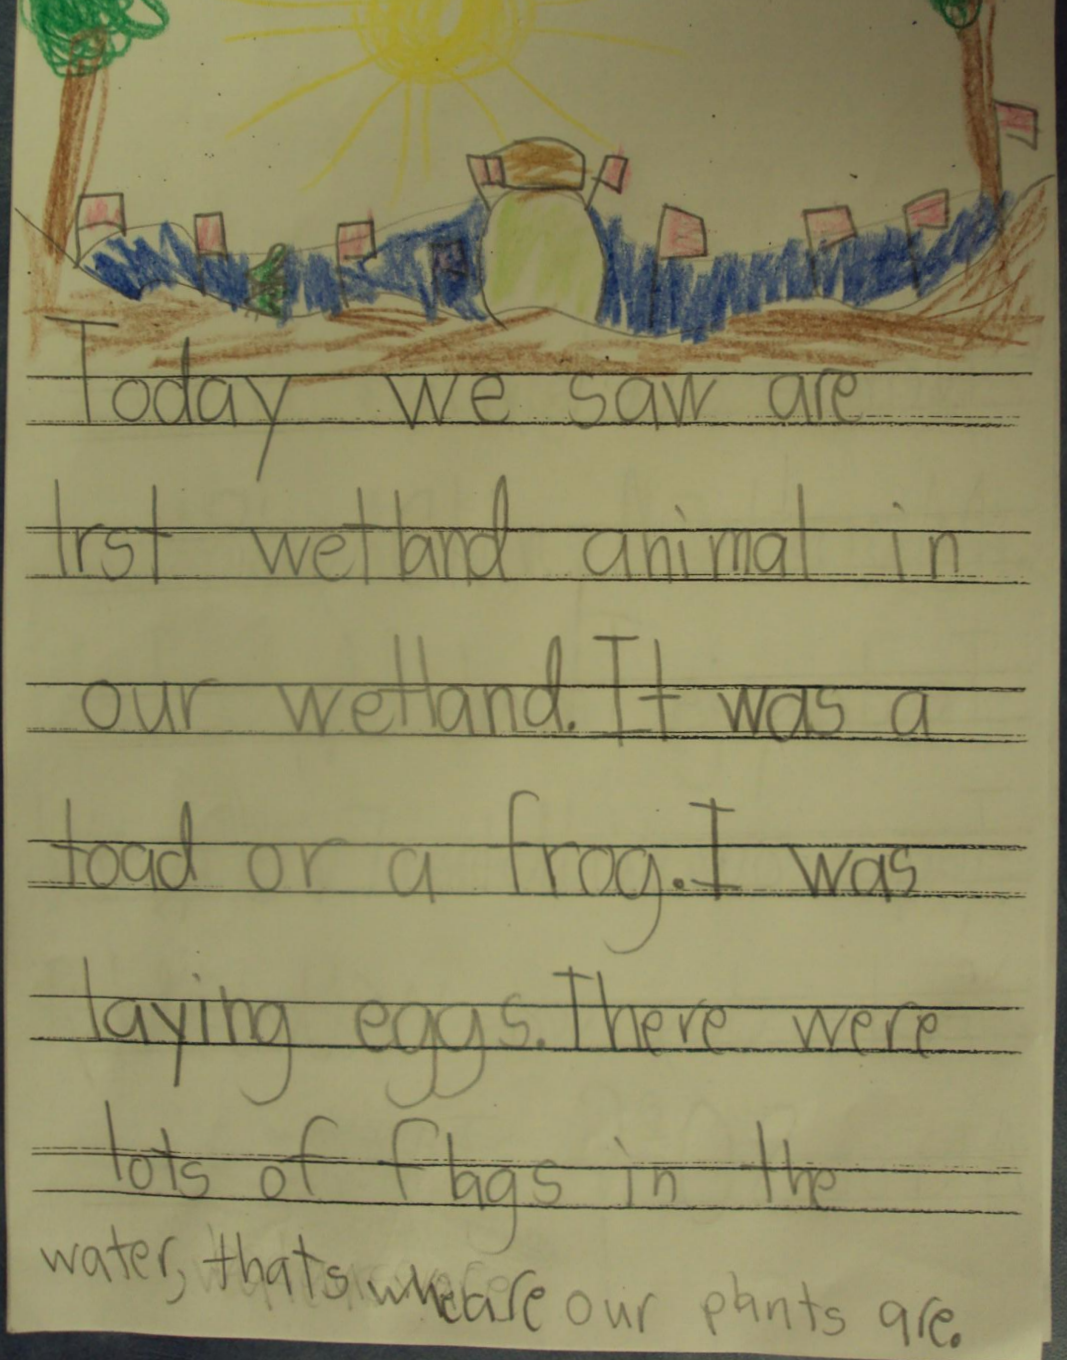 Today we saw are
frst wetland animal in
our wetland. It was a
toad or a frog. I was
laying eggs. There were
lots of flags in the
water, thats wheare our plants are.